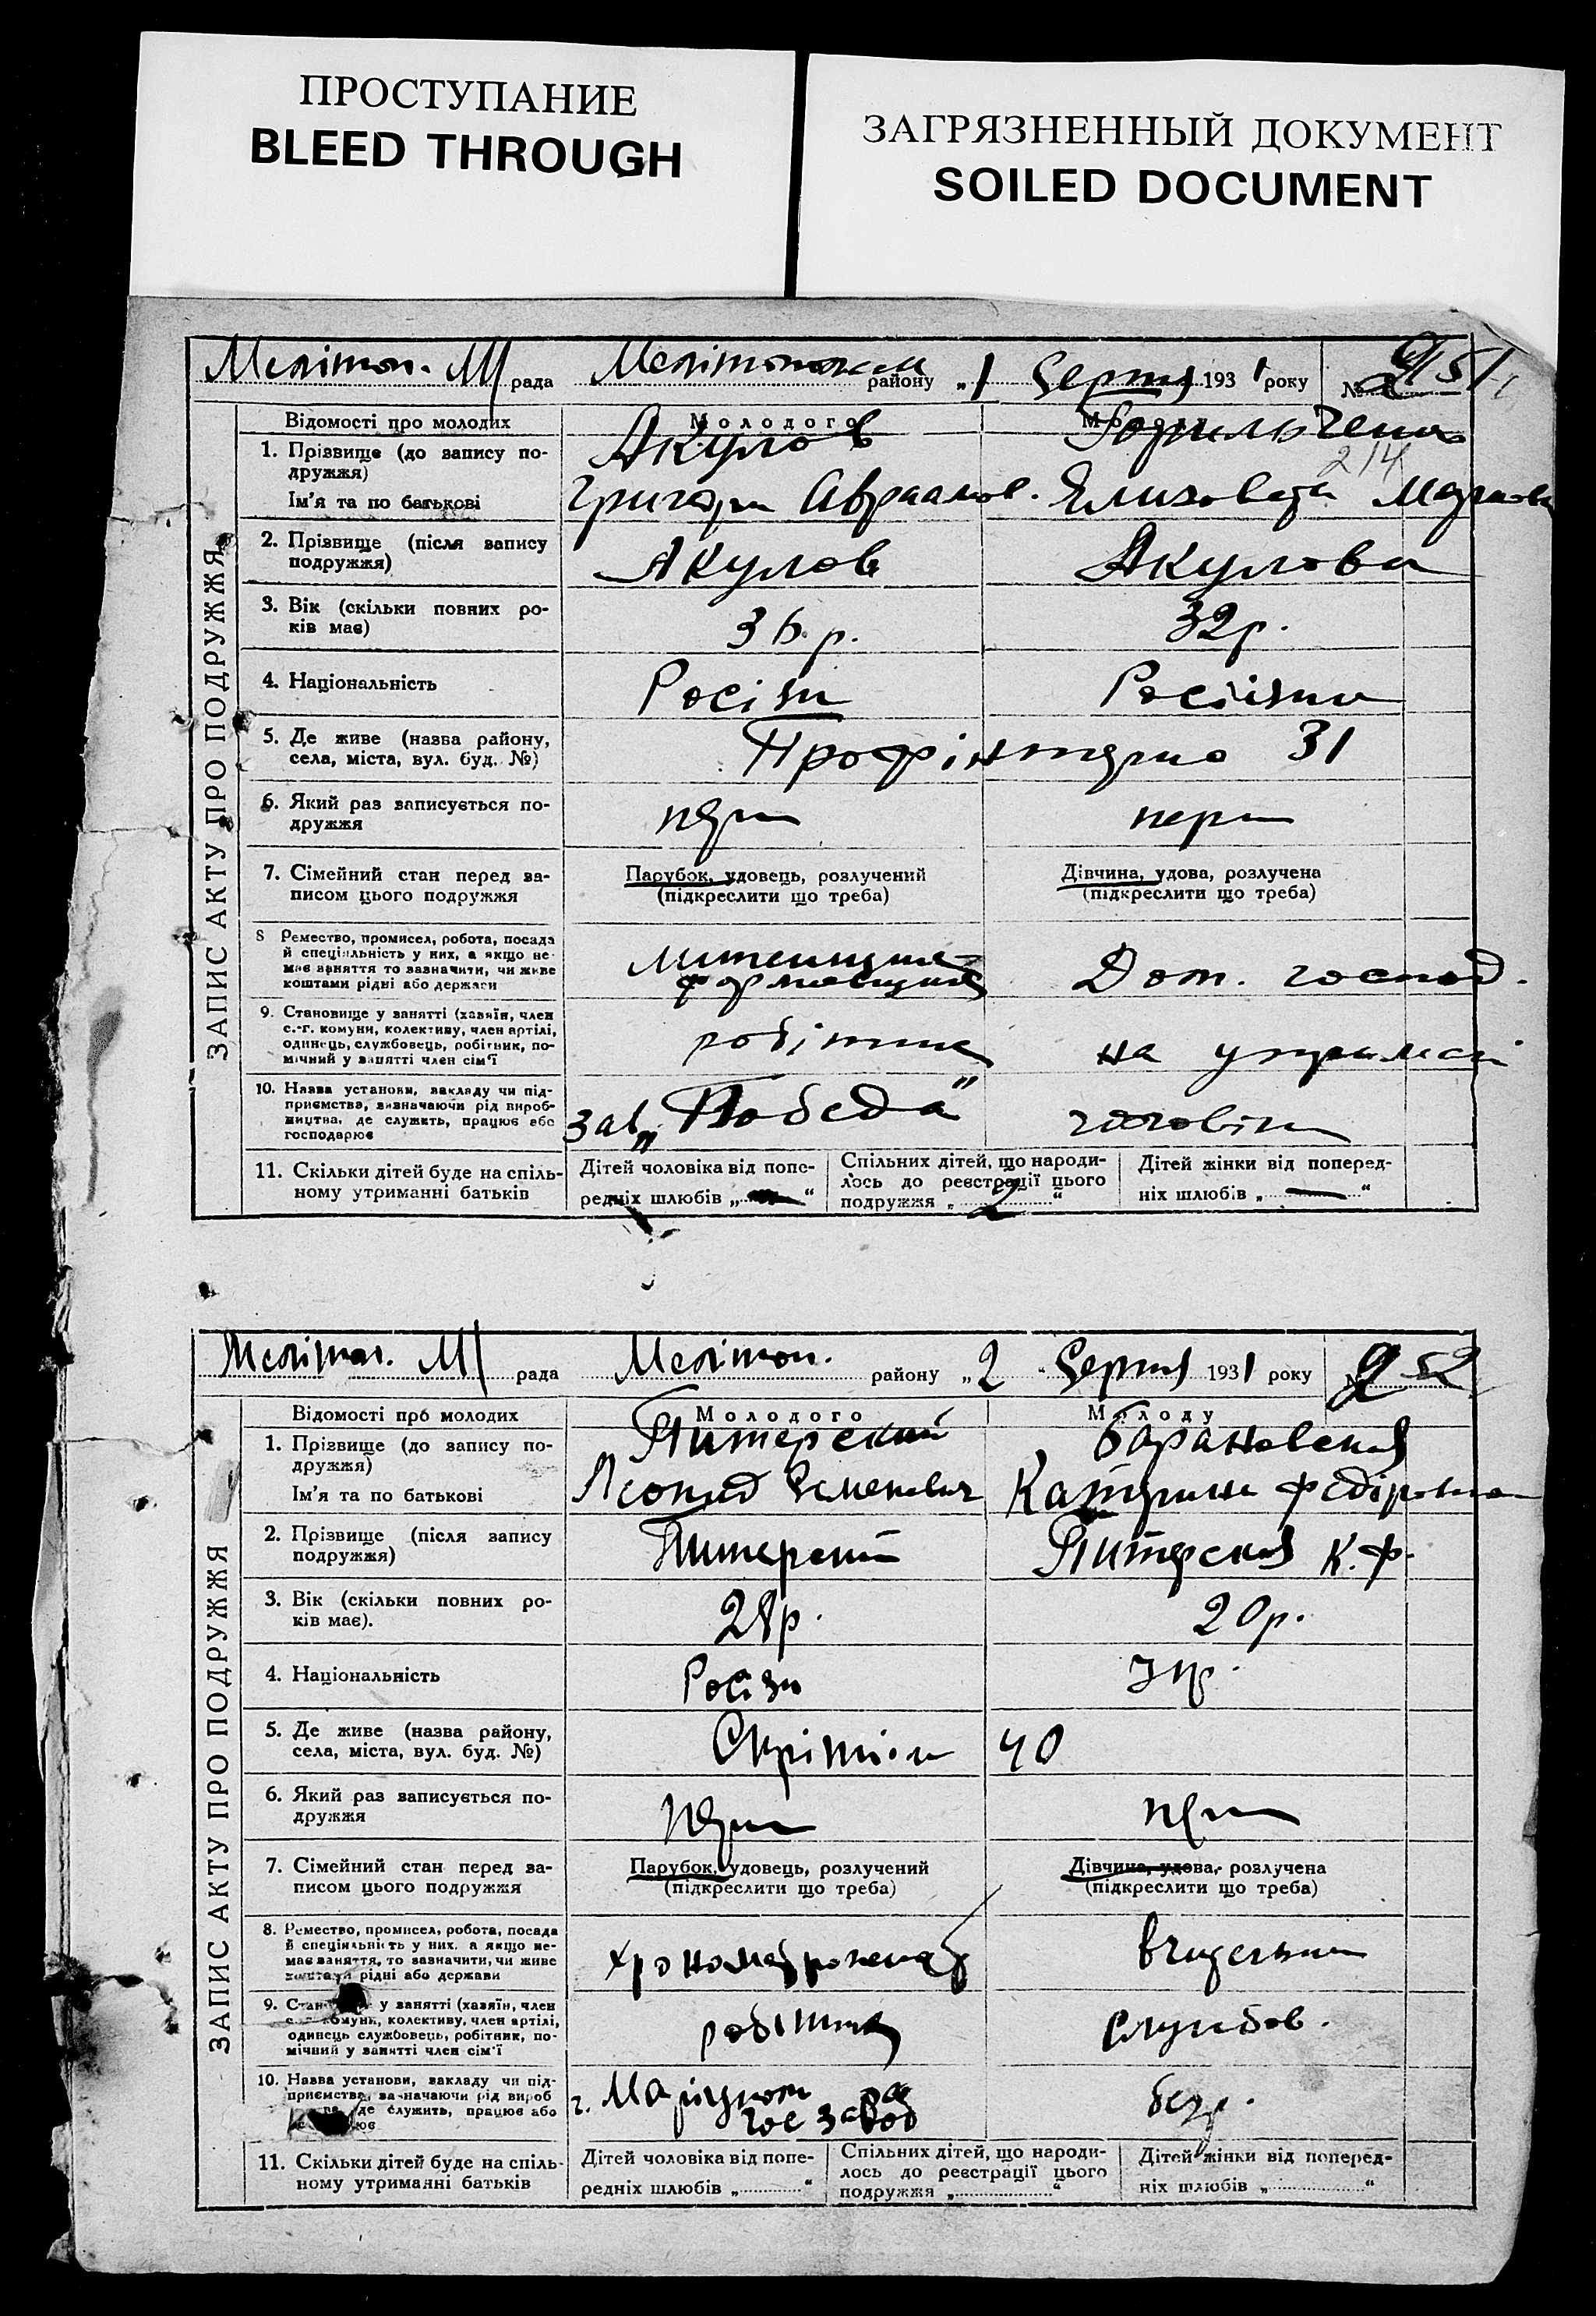 ПРОСТУПАНИЕ
BLEED THROUGH
ЗАГРЯЗНЕННЫЙ ДОКУМЕНТ
SOILED DOCUMENT
ЗАПИС АКТУ ПРО ПОДРУЖЖЯ
Мелітоп. М рада району „1 Серпня 1931 року № 951
Відомості про молодих Молодого
1. Прізвище (до запису по-
дружжя) Акулов
214
Ім'я та по батькові Григорій Авраамов. Єлизовета
2. Прізвище (після запису
подружжя) Акулов Акулова
3. Вік (скільки повних ро-
ків має) 36 р. 32 р.
4. Національність Росіян Росіянка
5. Де живе (назва району,
села, міста, вул. буд. №) Профінтерна 31
6. Який раз записується по-
дружжя перш перш
7. Сімейний стан перед за-
писом цього подружжя
Парубок, удовець, розлучений
(підкреслити що треба)
Дівчина, удова, розлучена
(підкреслити що треба)
8 Ремество, промисел, робота, посада
й спеціяльність у них, а якщо не-
має заняття то зазначити, чи живе
коштами рідні або держави
Дом. господ.
9. Становище у занятті (хазяїн, член
с.-г. комуни, колективу, член артілі,
одинець, службовець, робітник, по-
мічний у занятті член сім'ї
робітник на утриманні
10. Назва установи, закладу чи під-
приємства, визначаючи рід вироб-
ництва, де служить, працює або
господарює
зав „Победа" чоловіка
11. Скільки дітей буде на спіль-
ному утриманні батьків
Дітей чоловіка від попе-
редніх шлюбів „ — “
Спільних дітей, що народи-
лось до реєстрації цього
подружжя „ 2 “
Дітей жінки від поперед-
ніх шлюбів „ — “
ЗАПИС АКТУ ПРО ПОДРУЖЖЯ
Мелітоп. М рада Мелітоп. району „2 “ Серпня 1931 року № 952
Відомості про молодих Молодого Молоду
1. Прізвище (до запису по-
дружжя) Питерский Барановская
Ім'я та по батькові Леонид Семенович Катерина Федіровна
2. Прізвище (після запису
подружжя) Питерский Питерская К. Ф.
3. Вік (скільки повних ро-
ків має). 28 р. 20 р.
4. Національність Росіян Укр.
5. Де живе (назва району,
села, міста, вул. буд. №) 40
6. Який раз записується по-
дружжя перш перш
7. Сімейний стан перед за-
писом цього подружжя
Парубок, удовець, розлучений
(підкреслити що треба)
Дівчина, удова, розлучена
(підкреслити що треба)
8. Ремество, промисел, робота, посада
й спеціяльність у них, а якщо не-
має заняття, то зазначити, чи живе
коштами рідні або держави
вчителька
9. Становище у занятті (хазяїн, член
с.-г. комуни, колективу, член артілі,
одинець службовець, робітник, по-
мічний у занятті член сім'ї
робітник службов.
10. Назва установи, закладу чи під-
приємства, зазначаючи рід вироб
де служить, працює або
г. Маріуполь
Гос завод
безр.
11. Скільки дітей буде на спіль-
ному утриманні батьків
Дітей чоловіка від попе-
редніх шлюбів „ “
Спільних дітей, що народи-
лось до реєстрації цього
подружжя „ “
Дітей жінки від поперед-
ніх шлюбів „ “